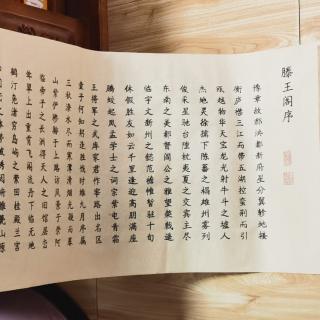 滕王阁序
豫章故郡洪都新府星分翼轸地接
衡庐襟三江而带五湖控蛮荆而引
瓯越物华天宝龙光射牛斗之墟人
杰地灵徐孺下陈蕃之榻雄州雾列
俊采星驰台隍枕夷夏之交宾主尽
东南之美都督阎公之雅望棨戟遥
临宇文新州之懿范襜帷暂驻十旬
休假胜友如云千里逢迎高朋满座
腾蛟起凤孟学士之词宗紫电青霜
王将军之武库家君作宰路出名区
童子何知躬逢胜饯时维九月序属
三秋潦水尽而寒潭清烟光凝而暮
山紫俨骖騑于上路访风景于崇阿
临帝子之长洲得天人之旧馆层峦
耸翠上出重霄飞阁流丹下临无地
鹤汀凫渚穷岛屿之萦回桂殿兰宫